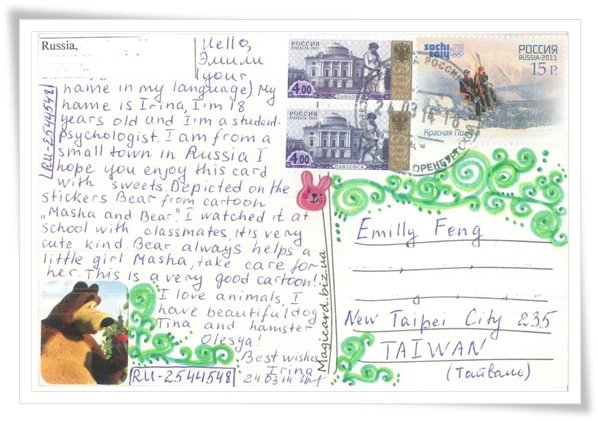 Russia,
Hello,
Эмили
(your
name in my language) My
name is Irina, I'm 18
years old and I'm a student-
psychologist. I am from a
small town in Russia I
hope you enjoy this card
with sweets. Depicted on the
stickers Bear from cartoon
"Masha and Bear". I watched it at
school with classmates. It's very
cute kind. Bear always helps a
little girl Masha, take care for
her. This is a very good cartoon!
I love animals, I
have beautiful dog
Tina and hamster
Olesya!
Best wishes
Irina
24.03.14
RU-2544548
RU-2544548
РОССИЯ
4.00
ПАВЛОВСК
РОССИЯ
4.00
ПАВЛОВСК
sochi.ru
2014
РОССИЯ
RUSSIA·2011
15 Р.
Красная Поляна
РОССИЯ
ОРЕНБУРГСК
Magicard.biz.ua
Emilly Feng
New Taipei City 235
TAIWAN
(Тайвань)